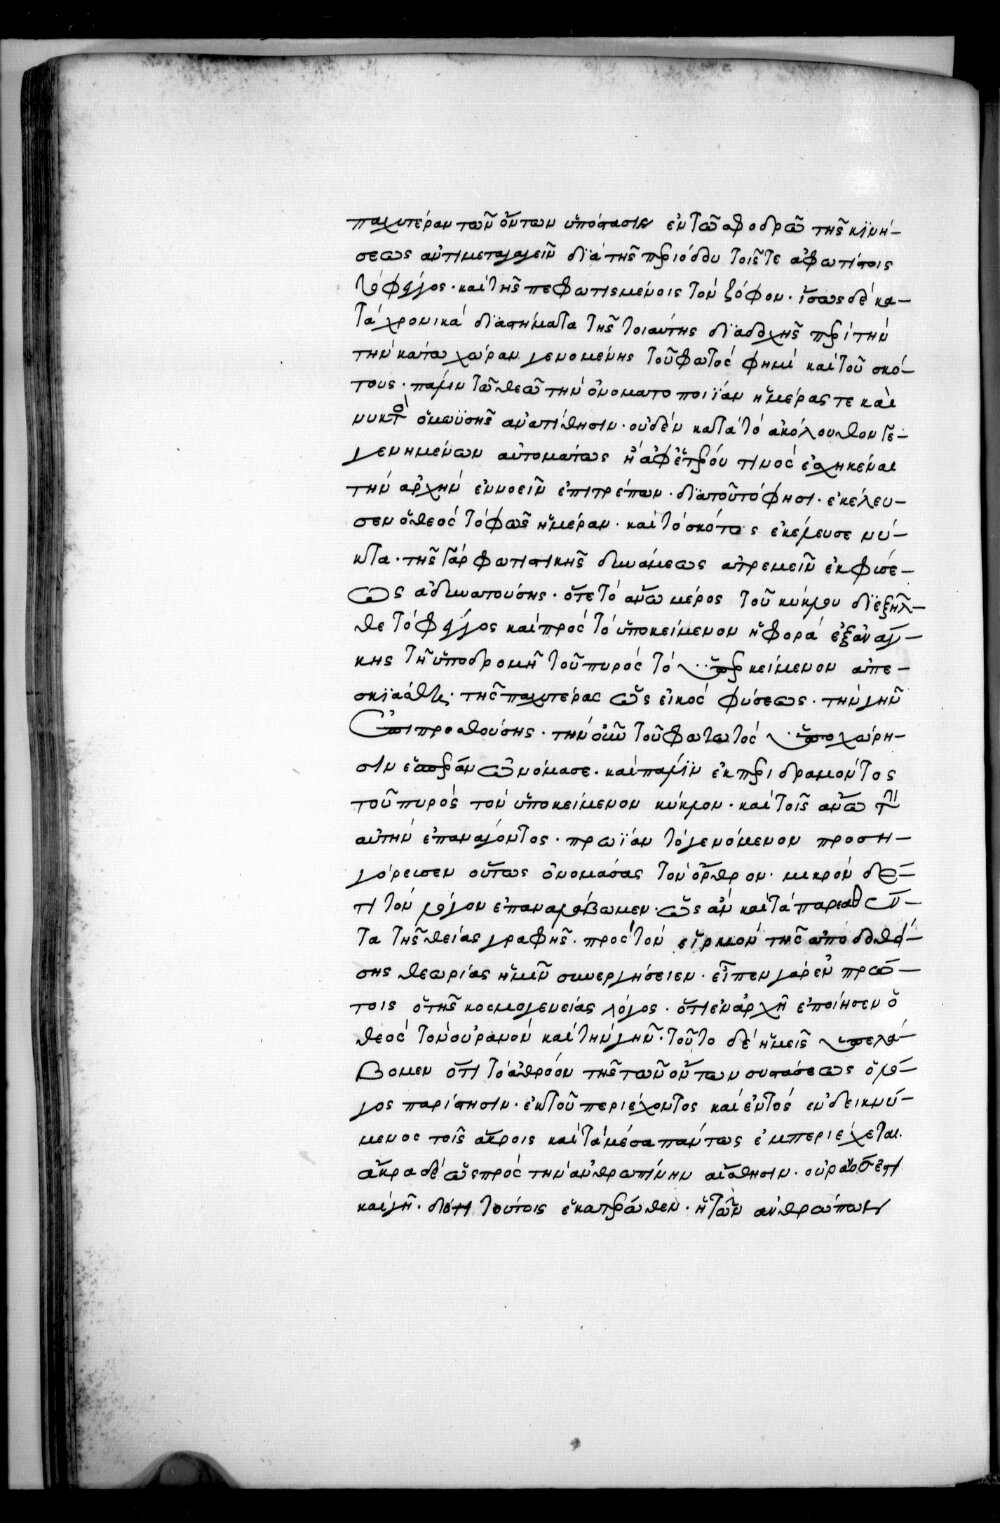 παχυτέραν τῶν ὄντων ὑπόστασιν ἐν τῶ σφοδρῶ τῆς κϊνή-
σεως ἀντιμεταλαγεῖν δϊὰ τῆς περιόδου τοῖς τε ἀφωτίστοις
τὸ φέγγος· καὶ τῆς πεφωτισμένοις τὸν ζόφον· ἴσως δὲ κα-
τὰ χρονικὰ δϊαστήματα τῆς τοιαύτης δϊαδοχῆς περὶ τὴν
τὴν κάτω χώραν γενομένης τοῦ φωτὸς φημὶ καὶ τοῦ σκό-
τους· πάλιν τῶ θεῶ τὴν ὀνοματοποιϊάν ἡμέρας τε καὶ
νυκτὸς ὁ μωϋσῆς ἀνατίθησιν· οὐδὲν κατὰ τὸ ἀκόλουθον γε-
γενημένων αὐτομάτως ἢ ἀφ ἑτέρου τινὸς ἐσχηκέναι
τὴν ἀρχὴν ἐννοεῖν ἐπιτρέπων· δϊατοῦτό φησι· ἐκέλευ-
σεν ὁ θεὸς τὸ φῶς ἡμέραν· καὶ τὸ σκότος ἐκέλευσε νύ-
κτα· τῆς γὰρ φωτιστικῆς δυνάμεως ἀτρεμεῖν ἐκ φύσε-
ως ἀδυνατούσης· ὅτε τὸ ἄνω μέρος τοῦ κύκλου δϊεξῆλ-
θε τὸ φέγγος καὶ πρὸς τὸ ὑποκείμενον ἡ φορὰ ἐξ ἀνάγ-
κης τῆ ὑποδρομῆ τοῦ πυρὸς τὸ ὑπερκείμενον ἀπε-
σκϊάσθη· τῆς παχυτέρας ὡς εἰκὸς φύσεως· τὴν γῆν
ἐπιπροσθούσης· τὴν οὖν τοῦ φωτὸς ὑποχώρη-
σιν ἑσπέραν ὠνόμασε· καὶ πάλϊν ἐκπεριδραμόντος
τοῦ πυρὸς τὸν ὑποκείμενον κύκλον· καὶ τοῖς ἄνω τὴν
αὐτὴν ἐπανάγοντος· πρωϊάν τὸ γενόμενον προση-
γόρευσεν οὕτως ὀνομάσας τὸν ὄρθρον· μικρὸν δέ
τι τὸν λόγον ἐπαναλάβωμεν· ὡς ἂν καὶ τὰ παρεθέν-
τα τῆς θείας γραφῆς· πρὸς τὸν εἱρμὸν τῆς ἀποδοθεί-
σης θεωρίας ἡμῖν συνεργήσειεν· εἶπεν γὰρ ἐν πρώ-
τοις ὁ τῆς κοσμογενείας λόγος· ὅτι ἐν ἀρχῆ ἐποίησεν ὁ
θεὸς τὸν οὐρανὸν καὶ τὴν γῆν· τοῦτο δὲ ἡμεῖς ὑπελά-
βομεν ὅτι τὸ ἀθρόον τῆς τῶν ὄντων συστάσεως ὁ λό-
γος παρίστησιν· ἐκ τοῦ περιέχοντος καὶ ἐντὸς ἐνδεικνύ-
μενος τοῖς ἄκροις καὶ τὰ μέσα πάντως ἐμπεριέχεται.
ἄκρα δὲ ὡς πρὸς τὴν ἀνθρωπίνην αἴσθησιν· οὐρανός ἐστι
καὶ γῆ· διότι τούτοις ἑκατέρωθεν· ἡ τῶν ἀνθρώπων